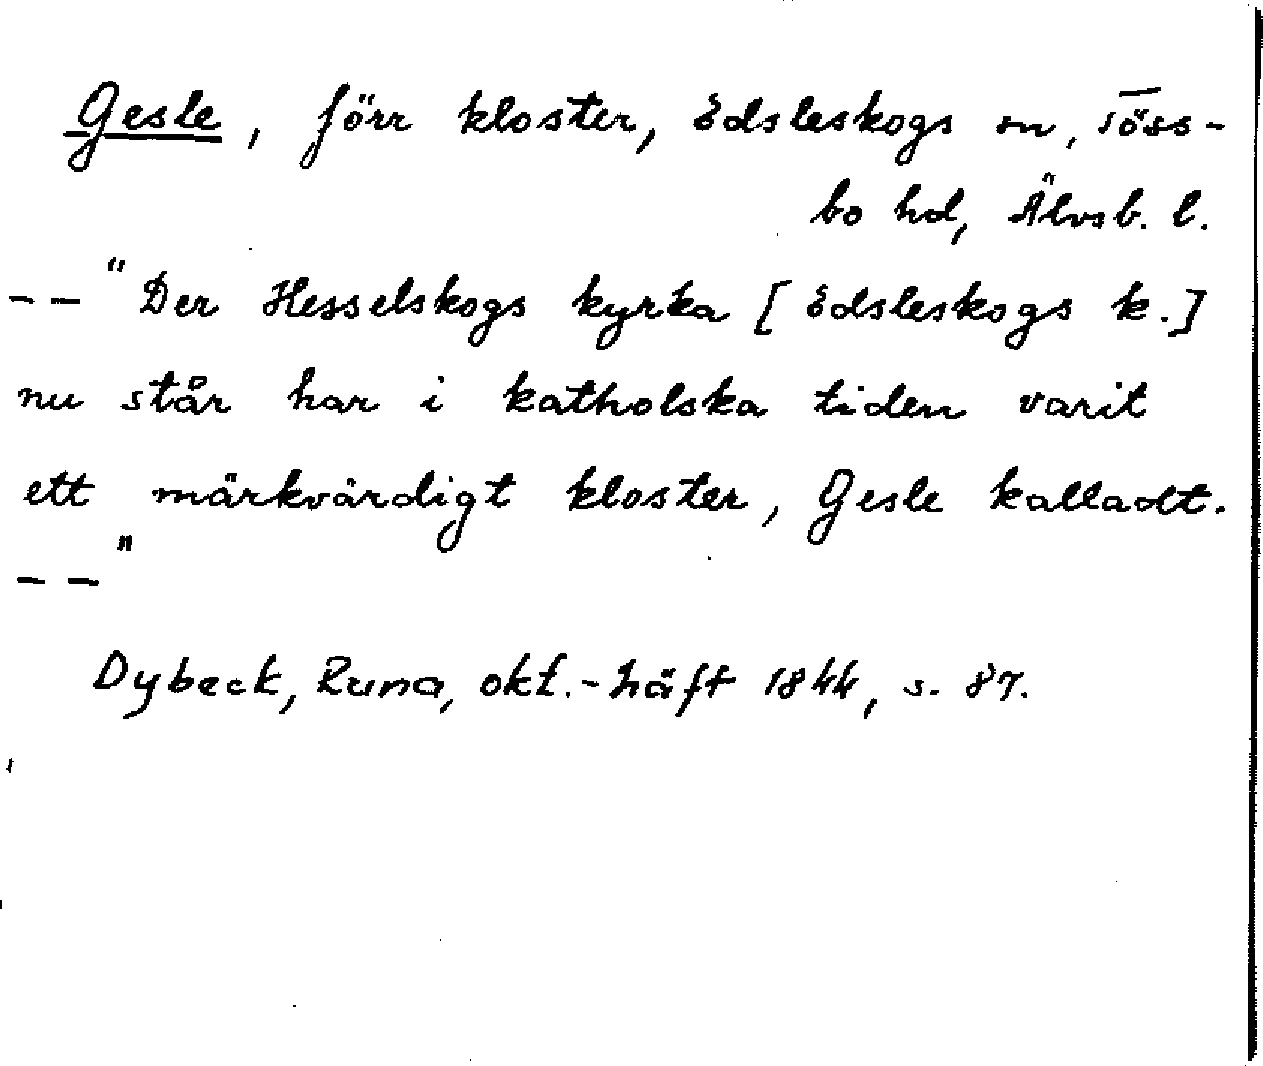 Gesle, förr kloster, Edsleskogs sn, Töss-
bo hd, Älvsb. l.
-- "Der Hesselskogs kyrka [Edsleskogs k.]
nu står har i katholska tiden varit
ett märkvärdigt kloster, Gesle kalladt.
-- "
Dybeck, Runa, okt.-häft 1844, s. 87.